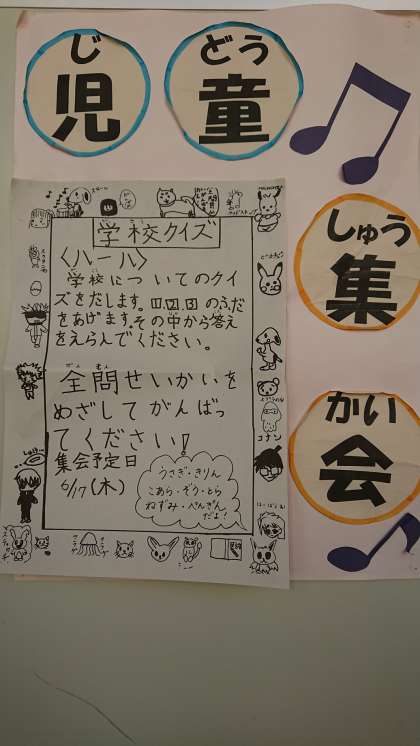 じ どう
児 童
しゅう
集
かい
会
学校クイズ
〈ルール〉
学校についてのクイ
ズをだします。
のふだ
をあげます。その中から答え
をえらんでください。
ぜん もん
全問せいかいを
めざしてがんばっ
てください!
集会予定日
6/17(木)
うさぎ・きりん
こあら・ぞう・とら
ねずみ・ぺんぎん
だよ!
コナン